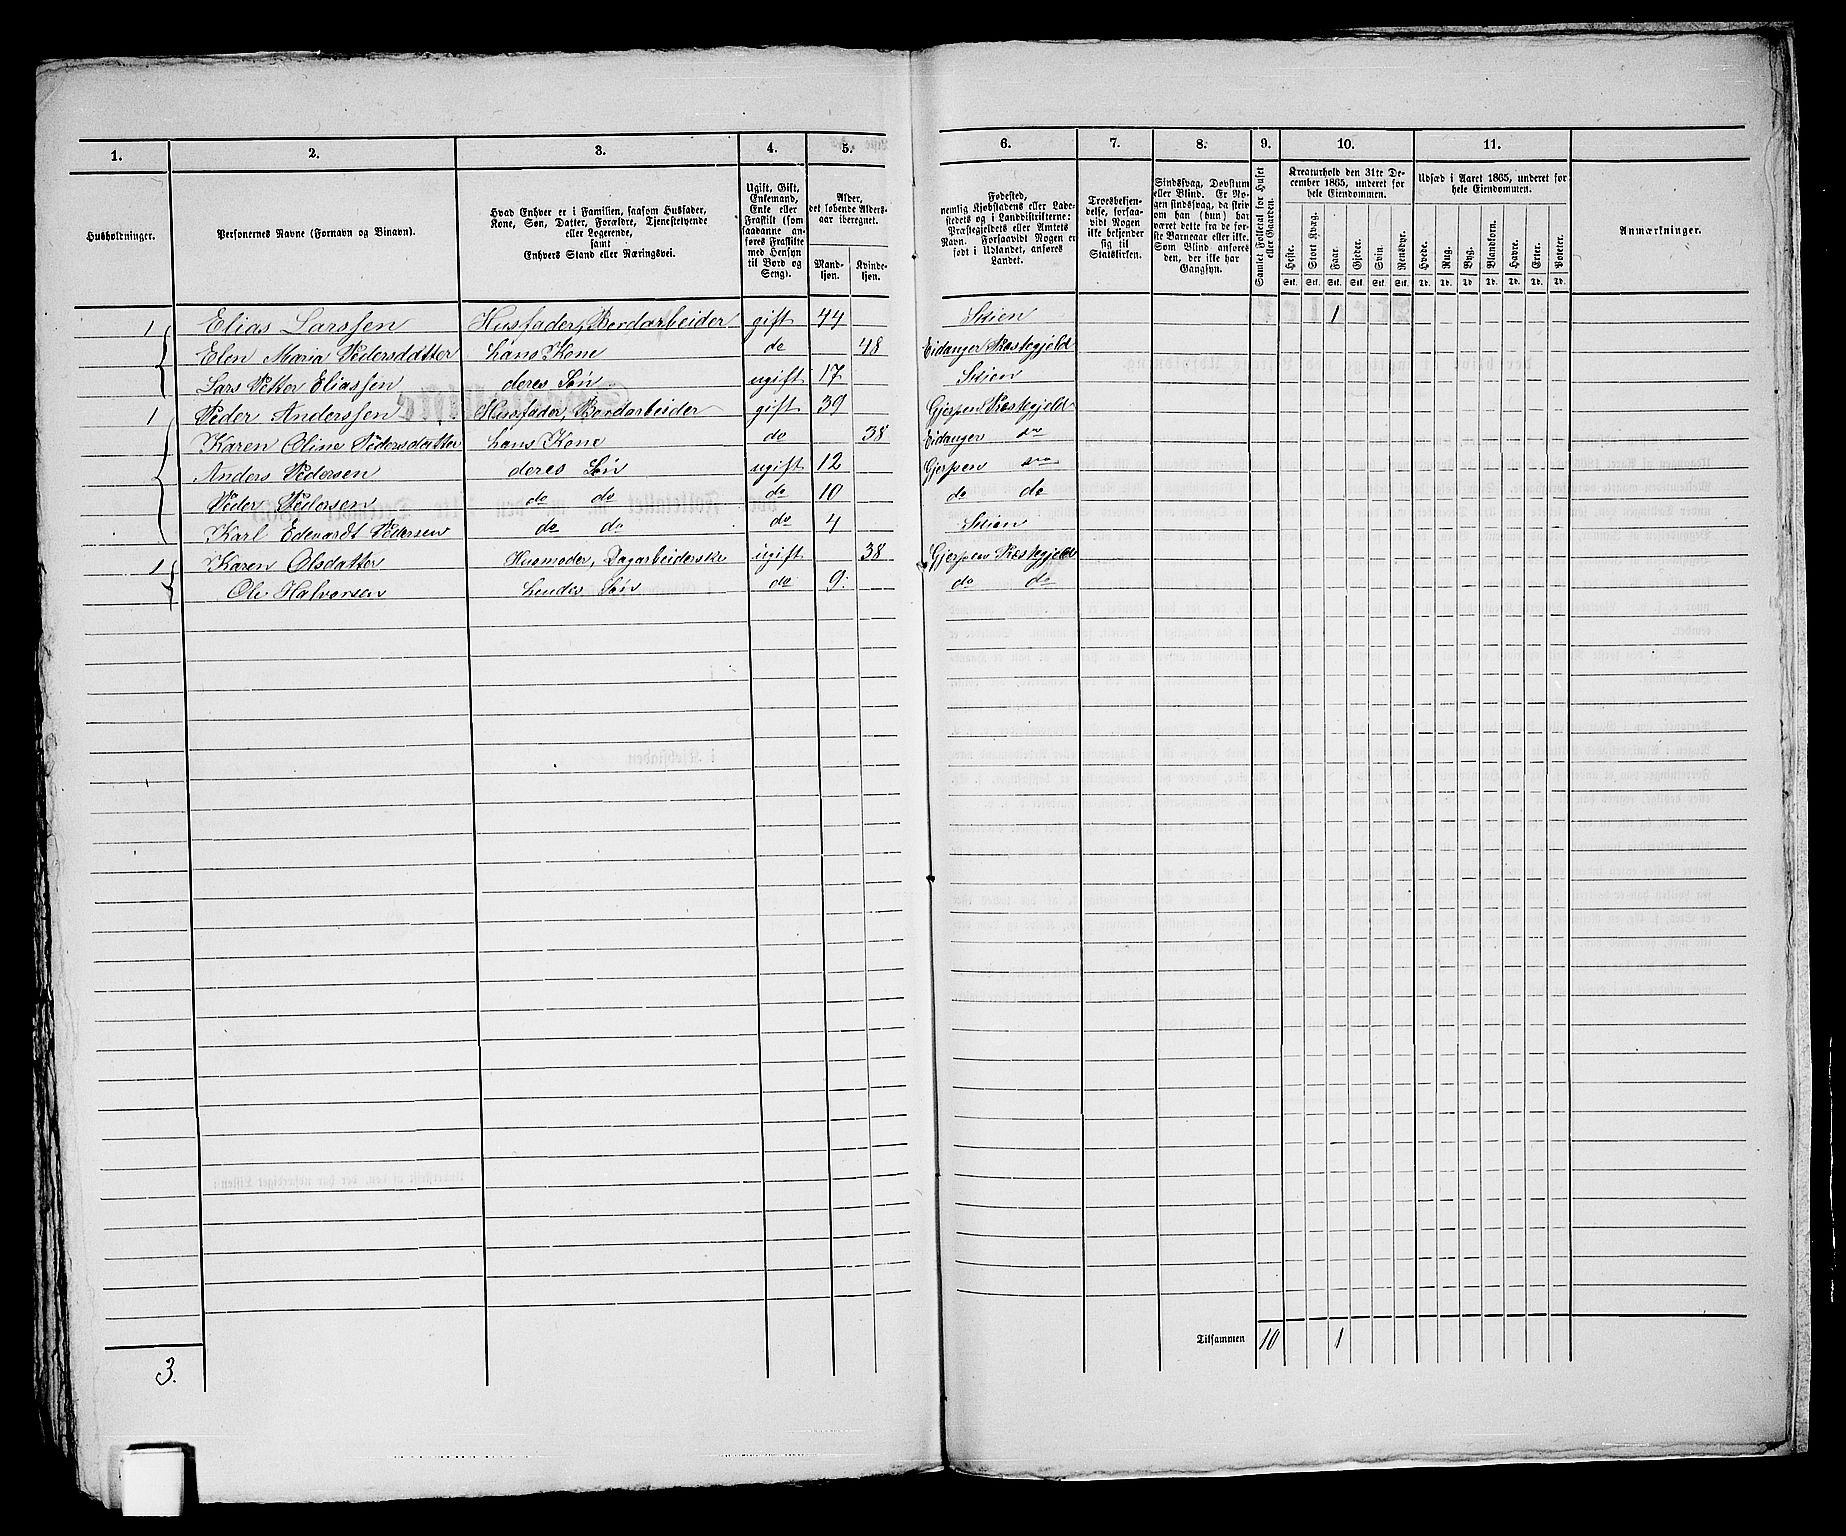 1. 2. 3. 4. 5. 6. 7. 8. 9. 10. 11.
Husholdninger.
Personernes Navne (Fornavn og Binavn).
Hvad Enhver er i Familien, saasom Husfader,
Kone, Søn, Datter, Forældre, Tjenestetyende
eller Logerende,
samt
Enhvers Stand eller Næringsvei.
Ugift, Gift,
Enkemand,
Enke eller
Fraskilt (som
saadanne an-
føres Fraskilte
med Hensyn
til Bord og
Seng).
Alder,
det løbende Alders-
aar iberegnet.
Mand-
kjøn.
Kvinde-
kjøn.
Fødested,
nemlig Kjøbstadens eller Lade-
stedets og i Landdistrikterne:
Præstegjeldets eller Amtets
Navn. Forsaavidt Nogen er
født i Udlandet, anføres
Landet.
Troesbekjen-
delse, forsaa-
vidt Nogen
ikke bekjender
sig til
Statskirken.
Sindssvag, Døvstum
eller Blind. Er No-
gen sindssvag, da skriv
om han (hun) har
været dette fra de før-
ste Barneaar eller ikke.
Som Blind anføres
den, der ikke har
Gangsyn.
Samlet Folketal for Huset
eller Gaarden.
Kreaturhold den 31te De-
cember 1865, underet for
hele Eiendommen.
Heste. Stort Kvæg. Faar. Gjeder. Svin. Rensdyr.
Stk. Stk. Stk. Stk. Stk. Stk.
Udsæd i Aaret 1865, underet for
hele Eiendommen.
Hvede. Rug. Byg. Blandkorn. Havre. Erter. Poteter.
Td. Td. Td. Td. Td. Td. Td.
Anmærkninger.
1 Elias Larssen Husfader, Bordarbeider gift 44 Skien 1
Elen Maria Pedersdatter hans Kone do 48 Eidanger Præstegjeld
Lars Petter Eliassen deres Søn ugift 17 Skien
1 Peder Anderssen Husfader, Bordarbeider gift 39 Gjerpen Præstegjeld
Karen Oline Pedersdatter hans Kone do 38 Eidanger do
Anders Pedersen deres Søn ugift 12 Gjerpen do
Peder Pedersen do do do 10 do do
Karl Edevardt Pedersen do do do 4 Skien
1 Karen Olsdatter Husmoder, Dagarbeiderske ugift 38 Gjerpen Præstegjeld
Ole Halvorsen hendes Søn do 9. do do
Tilsammen 10 1
3.